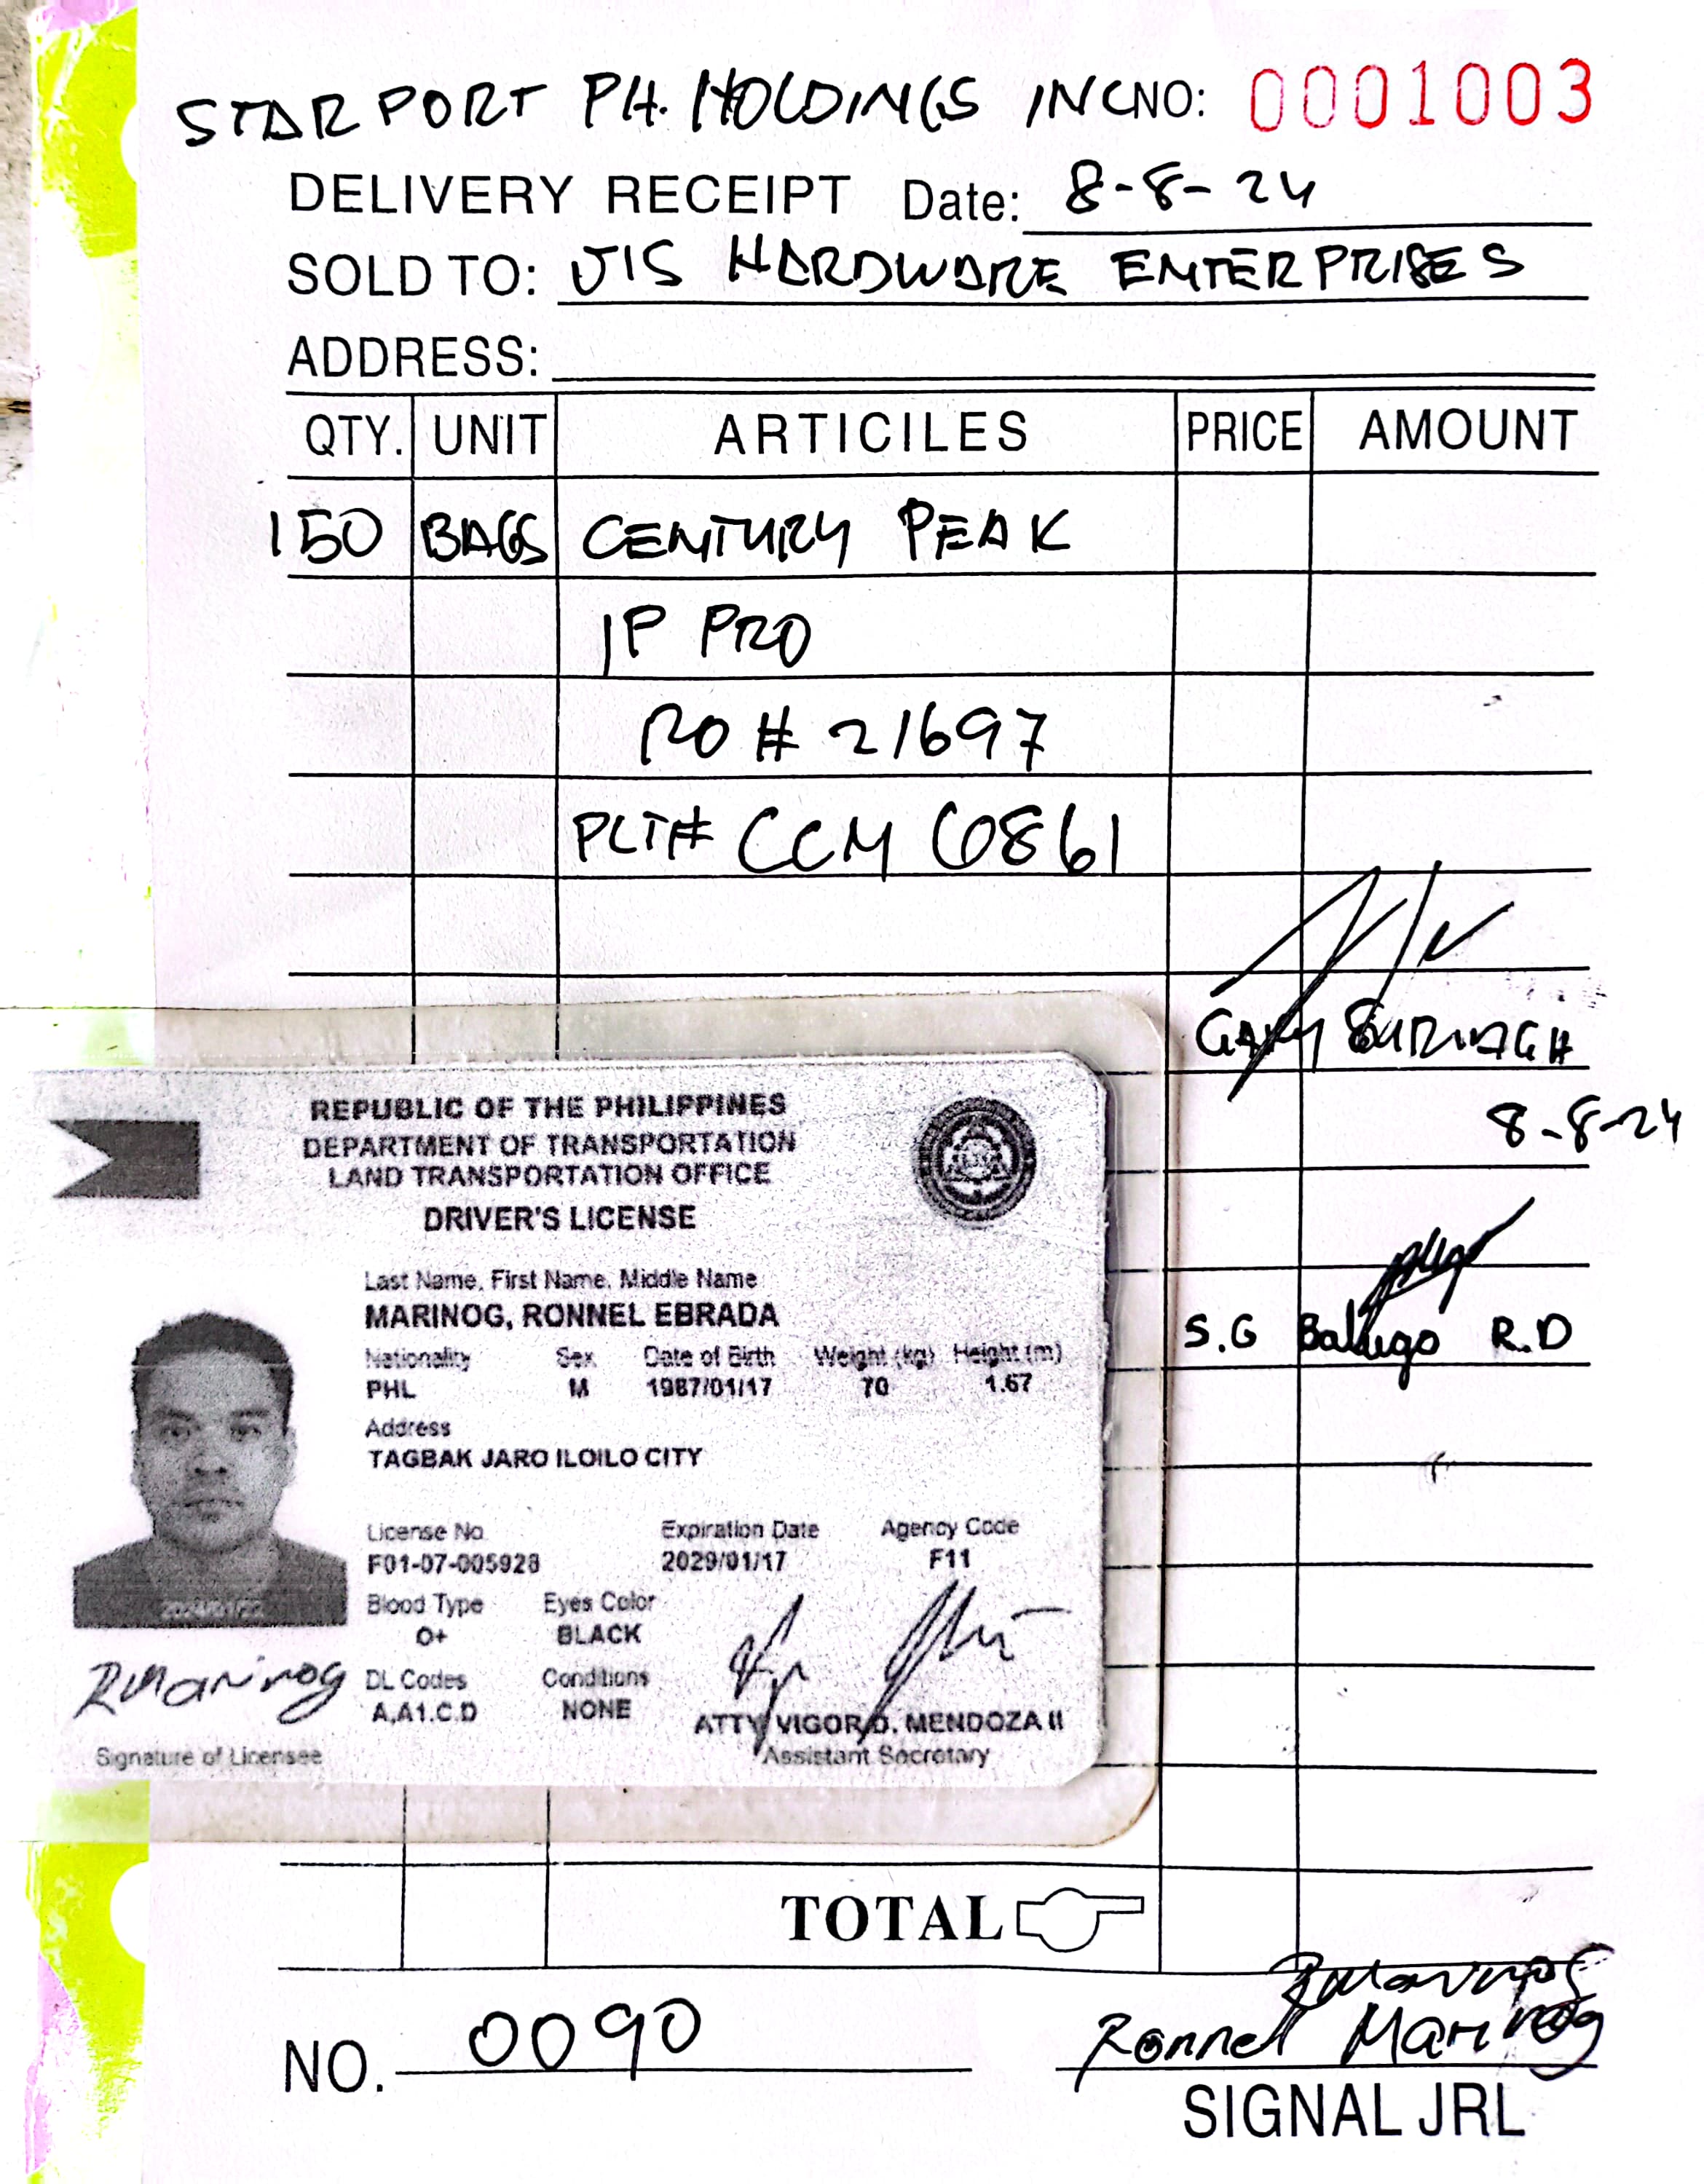 STARPORT PH. HOLDINGS INC NO: 0001003
DELIVERY RECEIPT Date: 8-8-24
SOLD TO: JIS HARDWARE ENTERPRISES
ADDRESS:
QTY. UNIT ARTICILES PRICE AMOUNT
150 BAGS CENTURY PEAK
1P PRO
RO # 21697
PLT# CCM 6861
GARY
8-8-24
S.G R.D
REPUBLIC OF THE PHILIPPINES
DEPARTMENT OF TRANSPORTATION
LAND TRANSPORTATION OFFICE
DRIVER'S LICENSE
Last Name, First Name, Middle Name
MARINOG, RONNEL EBRADA
Nationality Sex Date of Birth Weight (kg) Height (m)
PHL M 1987/01/17 70 1.67
Address
TAGBAK JARO ILOILO CITY
License No. Expiration Date Agency Code
F01-07-005928 2029/01/17 F11
Blood Type Eyes Color
O+ BLACK
DL Codes Conditions
A,A1,C,D NONE
RMarinog
ATTY VIGOR D. MENDOZA II
Signature of Licensee Assistant Secretary
TOTAL
RMarinog
NO. 0090 Ronnel Marinog
SIGNAL JRL